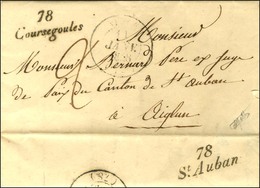 78
Coursegoules
Monsieur
Monsieur Bernard Père ex Juge
de Paix du Canton de St Auban
à Aiglun
78
St Auban